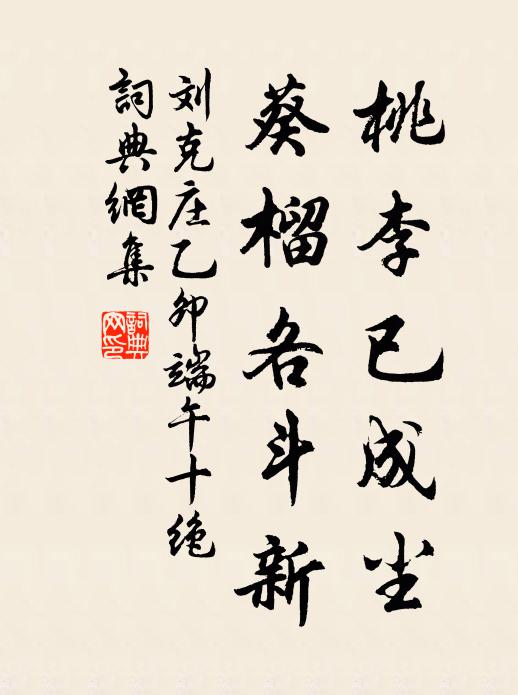 桃李已成尘
葵榴各斗新
刘克庄乙卯端午十绝
詞典網集
詞典
网印